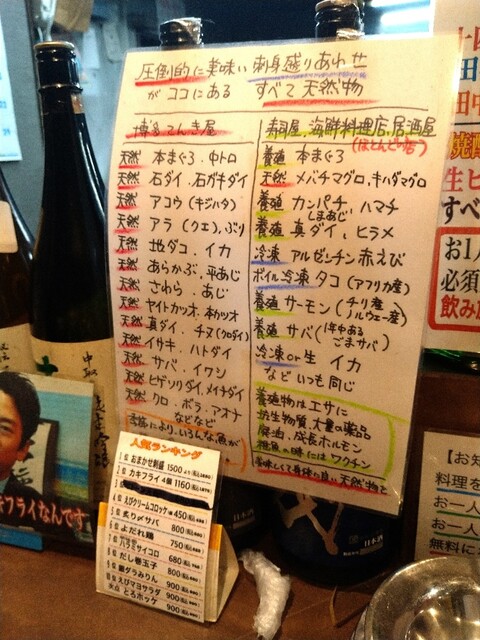 圧倒的に美味い刺身盛りあわせ
がココにある すべて天然物
博多てんき屋
天然 本まぐろ・中トロ
天然 石ダイ、石ガキダイ
天然 アコウ(キジハタ)
天然 アラ(クエ)、ぶり
天然 地ダコ、イカ
天然 あらかぶ・平あじ
天然 さわら・あじ
天然 ヤイトカツオ、本カツオ
天然 真ダイ、チヌ(クロダイ)
天然 イサキ、ハトダイ
天然 サバ、イワシ
天然 ヒゲソリダイ、メイチダイ
天然 クロ、ボラ、アオナ
などなど
季節により、いろんな魚が
寿司屋、海鮮料理店、居酒屋
(ほとんどの店)
養殖 本まぐろ
天然 メバチマグロ、キハダマグロ
養殖 カンパチ、ハマチ
しまあじ
養殖 真ダイ、ヒラメ
冷凍 アルゼンチン赤えび
ボイル冷凍 タコ(アフリカ産)
養殖 サーモン(チリ産、ノルウェー産)
養殖 サバ(1年中あるごまサバ)
冷凍or生 イカ
などいつも同じ
養殖物はエサに
抗生物質、大量の薬品
廃油、成長ホルモン
稚魚の時にはワクチン
美味しくて身体に良い天然物を
人気ランキング
1位 おまかせ刺盛 1500
2位 カキフライ 4個 1160
エビクリームコロッケ 450
炙り〆サバ 800
よだれ鶏 750
ハラミサイコロ 680
だし巻玉子 800
銀ダラみりん 900
えびマヨサラダ 900
とろホッケ 900
フライなんです
日本酒
焼酎
生ビ
すべ
お1人
必須
飲み放
【お知
料理を
お一人
お一人
無料に